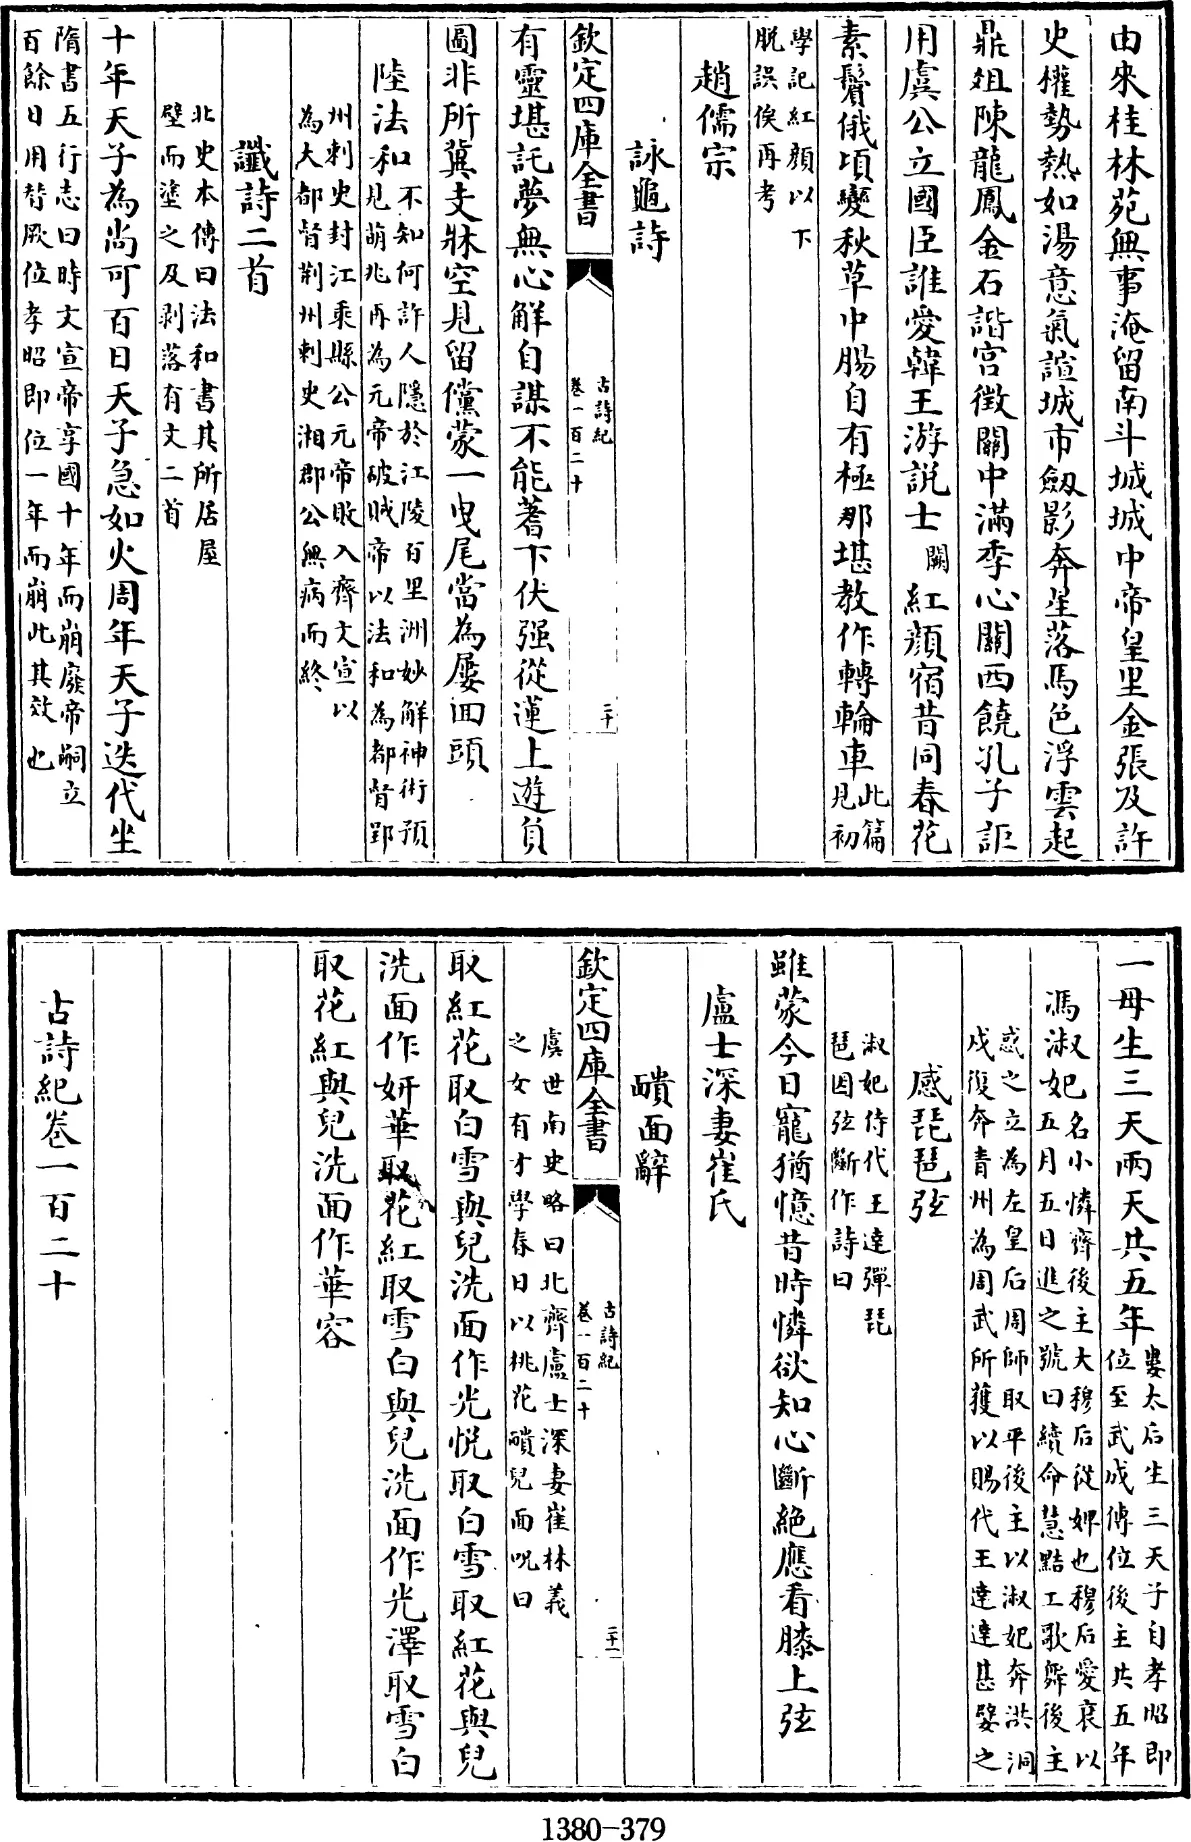 由來桂林苑無事淹留南斗城城中帝皇里金張及許
史權勢熱如湯意氣諠城市劔影奔星落馬色浮雲起
鼎俎陳龍鳳金石諧宮徴關中滿季心關西饒孔子詎
用虞公立國臣誰愛韓王游説士闕紅顔宿昔同春花
素鬢俄頃變秋草中腸自有極那堪教作轉輪車此篇
見初
學記紅顔以下
脱誤俟再考
趙儒宗
詠龜詩
欽定四庫全書
古詩紀
卷一百二十
二十
有靈堪託夢無心解自謀不能蓍下伏强從蓮上遊負
圖非所冀支牀空見留儻蒙一曳尾當為屢回頭
陸法和不知何許人隱於江陵百里洲妙解神術預
見萌兆再為元帝破賊帝以法和為都督郢
州刺史封江乘縣公元帝敗入齊文宣以
為大都督荆州刺史湘郡公無病而終
讖詩二首
北史本傳曰法和書其所居屋
壁而塗之及剥落有文二首
十年天子為尚可百日天子急如火周年天子迭代坐
隋書五行志曰時文宣帝享國十年而崩廢帝嗣立
百餘日用替厥位孝昭即位一年而崩此其效也
一母生三天兩天共五年婁太后生三天子自孝昭即
位至武成傳位後主共五年
馮淑妃名小憐齊後主大穆后從婢也穆后愛衰以
五月五日進之號曰續命慧黠工歌舞後主
惑之立為左皇后周師取平後主以淑妃奔洪洞
戍復奔青州為周武所獲以賜代王達達甚嬖之
感琵琶弦
淑妃侍代王達彈琵
琶因弦斷作詩曰
雖蒙今日寵猶憶昔時憐欲知心斷絶應看膝上弦
盧士深妻崔氏
靧面辭
欽定四庫全書
古詩紀
卷一百二十
二十一
虞世南史略曰北齊盧士深妻崔林義
之女有才學春日以桃花靧兒面呪曰
取紅花取白雪與兒洗面作光悦取白雪取紅花與兒
洗面作妍華取花紅取雪白與兒洗面作光澤取雪白
取花紅與兒洗面作華容
古詩紀卷一百二十
1380-379